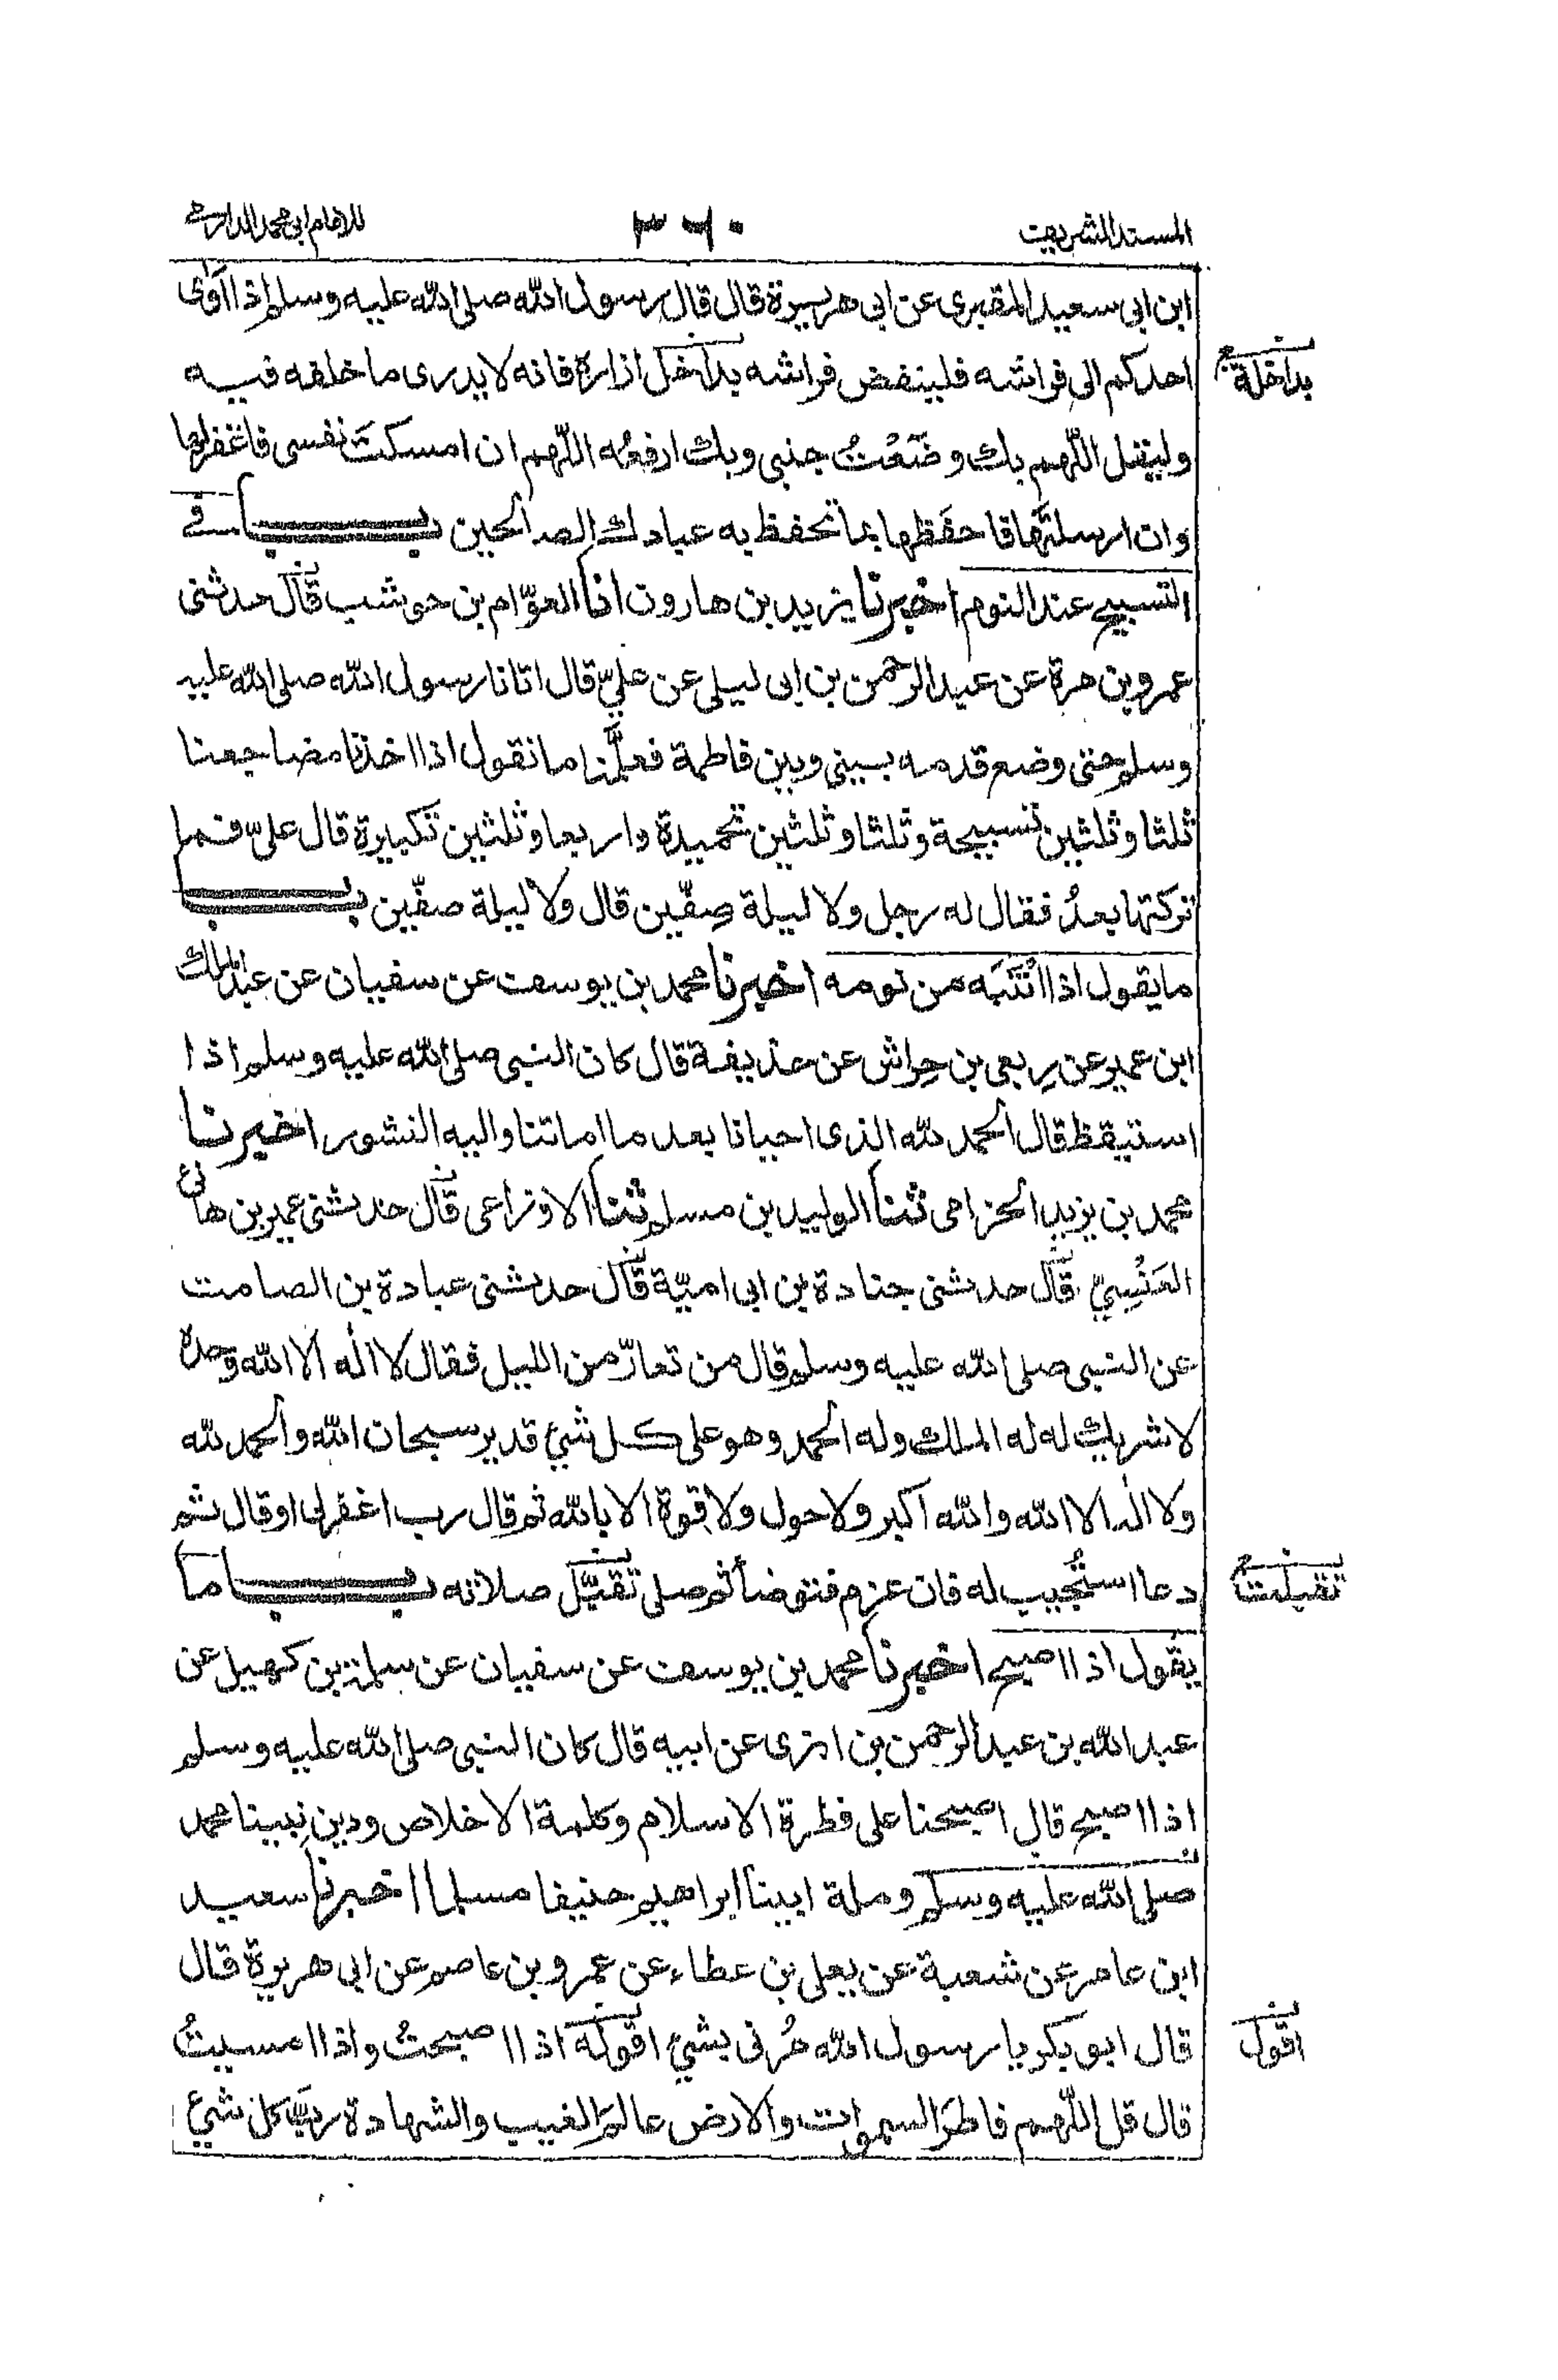 المسند الشريف
٣٦٠
للامام ابى محمد الدارمى
ابن ابى سعيد المقبرى عن ابى هريرة قال قال رسول الله صلى الله عليه وسلم اذا آوٰى
احدكم الى فراشه فلينفض فراشه بداخل ازاره فانه لا يدرى ما خلفه فيه
بداخلة
وليقل اللّٰهم بك وضَعْتُ جنبى وبك ارفعُه اللّٰهم ان امسكتَ نفسى فاغفرلها
وان ارسلتَها فاحفَظها بما تحفظ به عبادك الصالحين باب فى
التسبيح عند النوم اخبرنا يزيد بن هارون انا العوّام بن حوشب قال حدثنى
عمرو بن مرة عن عبد الرحمن بن ابى ليلى عن علىّ قال اتانا رسول الله صلى الله عليه
وسلم حتى وضع قدمه بينى وبين فاطمة فعلَّمنا ما نقول اذا اخذنا مضاجعنا
ثلثا وثلثين تسبيحة وثلثا وثلثين تحميدة واربعا وثلثين تكبيرة قال علىّ فما
تركتها بعدُ فقال له رجل ولا ليلة صِفّين قال ولا ليلة صفّين باب
ما يقول اذا انْتَبَه من نومه اخبرنا محمد بن يوسف عن سفيان عن عبد الملك
ابن عمير عن رِبعى بن حِراش عن حذيفة قال كان النبى صلى الله عليه وسلم اذا
استيقظ قال الحمد لله الذى احيانا بعد ما اماتنا واليه النشور اخبرنا
محمد بن يزيد الحزامى ثنا الوليد بن مسلم ثنا الاوزاعى قال حدثنى عمير بن هانئ
العَنْسِىّ قال حدثنى جنادة بن ابى اميّة قال حدثنى عبادة بن الصامت
عن النبى صلى الله عليه وسلم قال من تعارّ من الليل فقال لا اله الا الله وحده
لا شريك له له الملك وله الحمد وهو على كل شىء قدير سبحان الله والحمد لله
ولا اله الا الله والله اكبر ولا حول ولا قوة الا بالله ثم قال رب اغفرلى او قال ثم
دعا استُجيب له فان عزم فتوضأ ثم صلى تقبّل صلاته باب ما
تقبلت
يقول اذا اصبح اخبرنا محمد بن يوسف عن سفيان عن سلمة بن كهيل عن
عبد الله بن عبد الرحمن بن ابزى عن ابيه قال كان النبى صلى الله عليه وسلم
اذا اصبح قال اصبحنا على فطرة الاسلام وكلمة الاخلاص ودين نبينا محمد
صلى الله عليه وسلم وملة ابينا ابراهيم حنيفا مسلما اخبرنا سعيد
ابن عامر عن شعبة عن يعلى بن عطاء عن عمرو بن عاصم عن ابى هريرة قال
قال ابو بكر يا رسول الله مُرنى بشىء اقوله اذا اصبحتُ واذا امسيتُ
اقول
قال قل اللّٰهم فاطرَ السموات والارض عالمَ الغيب والشهادة ربَّ كل شىء